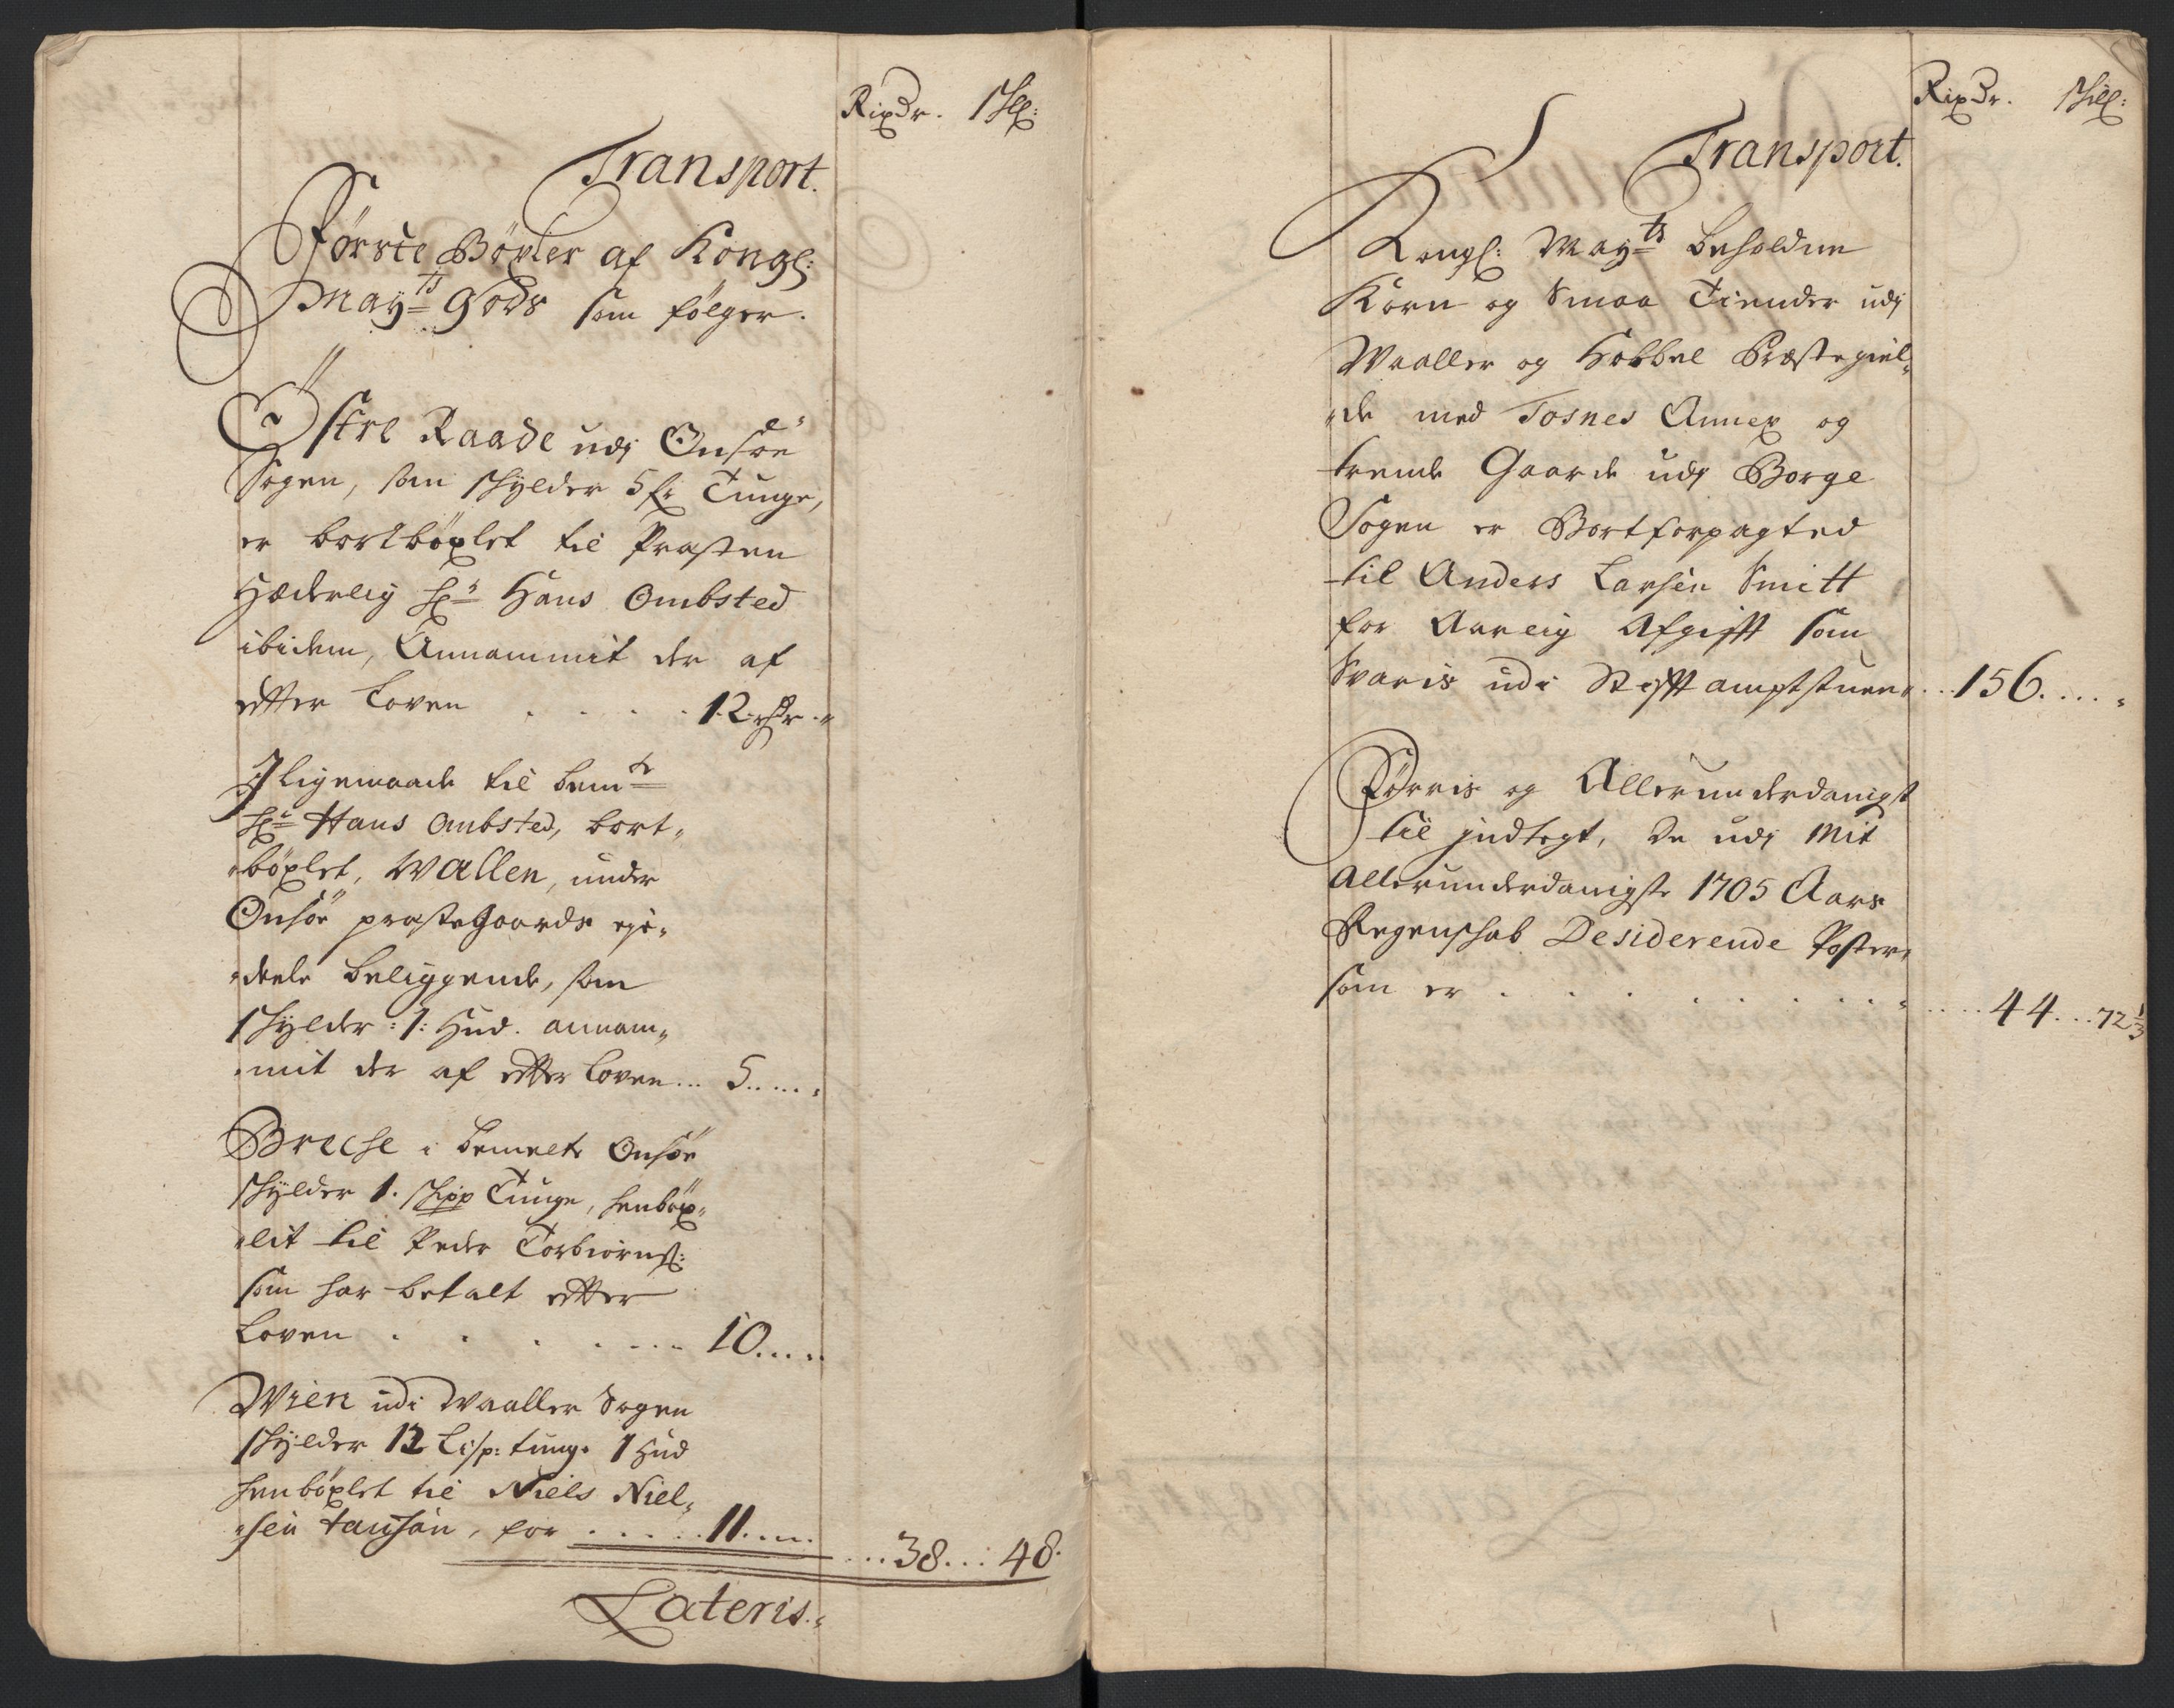 Rixdr. sk:
Transport.
Første Böxler af Kongl:
Mayts Gods som følger.
Östre Raade udj Onsöe
Sogen, som skylder 5 fr Tunge,
er bortböxlet til Præsten
Hæderlig Hr Hans Ombsted
ibidem, Annammit der af
effter Loven . . . . 12 rdr "
Iligemaade til bemte
Hr Hans Ombsted, bort-
-böxlet, Wallen, under
Onsöe præstegaards eje-
-deele beliggende, som
skylder :1: Hud. annam-
-mit der af effter Loven ... 5 .....
Brecke i bemelte Onsöe
skylder 1. skipp Tunge, henböx-
-lit til Peder Torbiörnß:
som har betalt effter
Loven . . . . . . . 10 .....
Wien udi Waaller Sogen
skylder 12 Lisp: tunge 1 Hud
henböxlet til Niels Niel-
-sen , for . . . . . 11 .... ...38... 48.
Lateris.
Rixdr. skil:
Transport.
Kongl: Mayts beholdne
Korn og Smaa Tiender udj
Waaller og Hobbel Præstegiel-
-de med Tosnes Annex og
trende Gaarde udj Borge
Sogen er Bortforpagted
til Anders Larsen Smitt
for Aarlig Afgifft som
Svaris udi Stifftamptstuen ...156....
Föris og Allerunderdanigst
til jndtegt, de udj Mit
Allerunderdanigste 1705 Aars
Regenskab Desiderende Poster,
som er . . . . . . . . . . . . 44...72 1/3